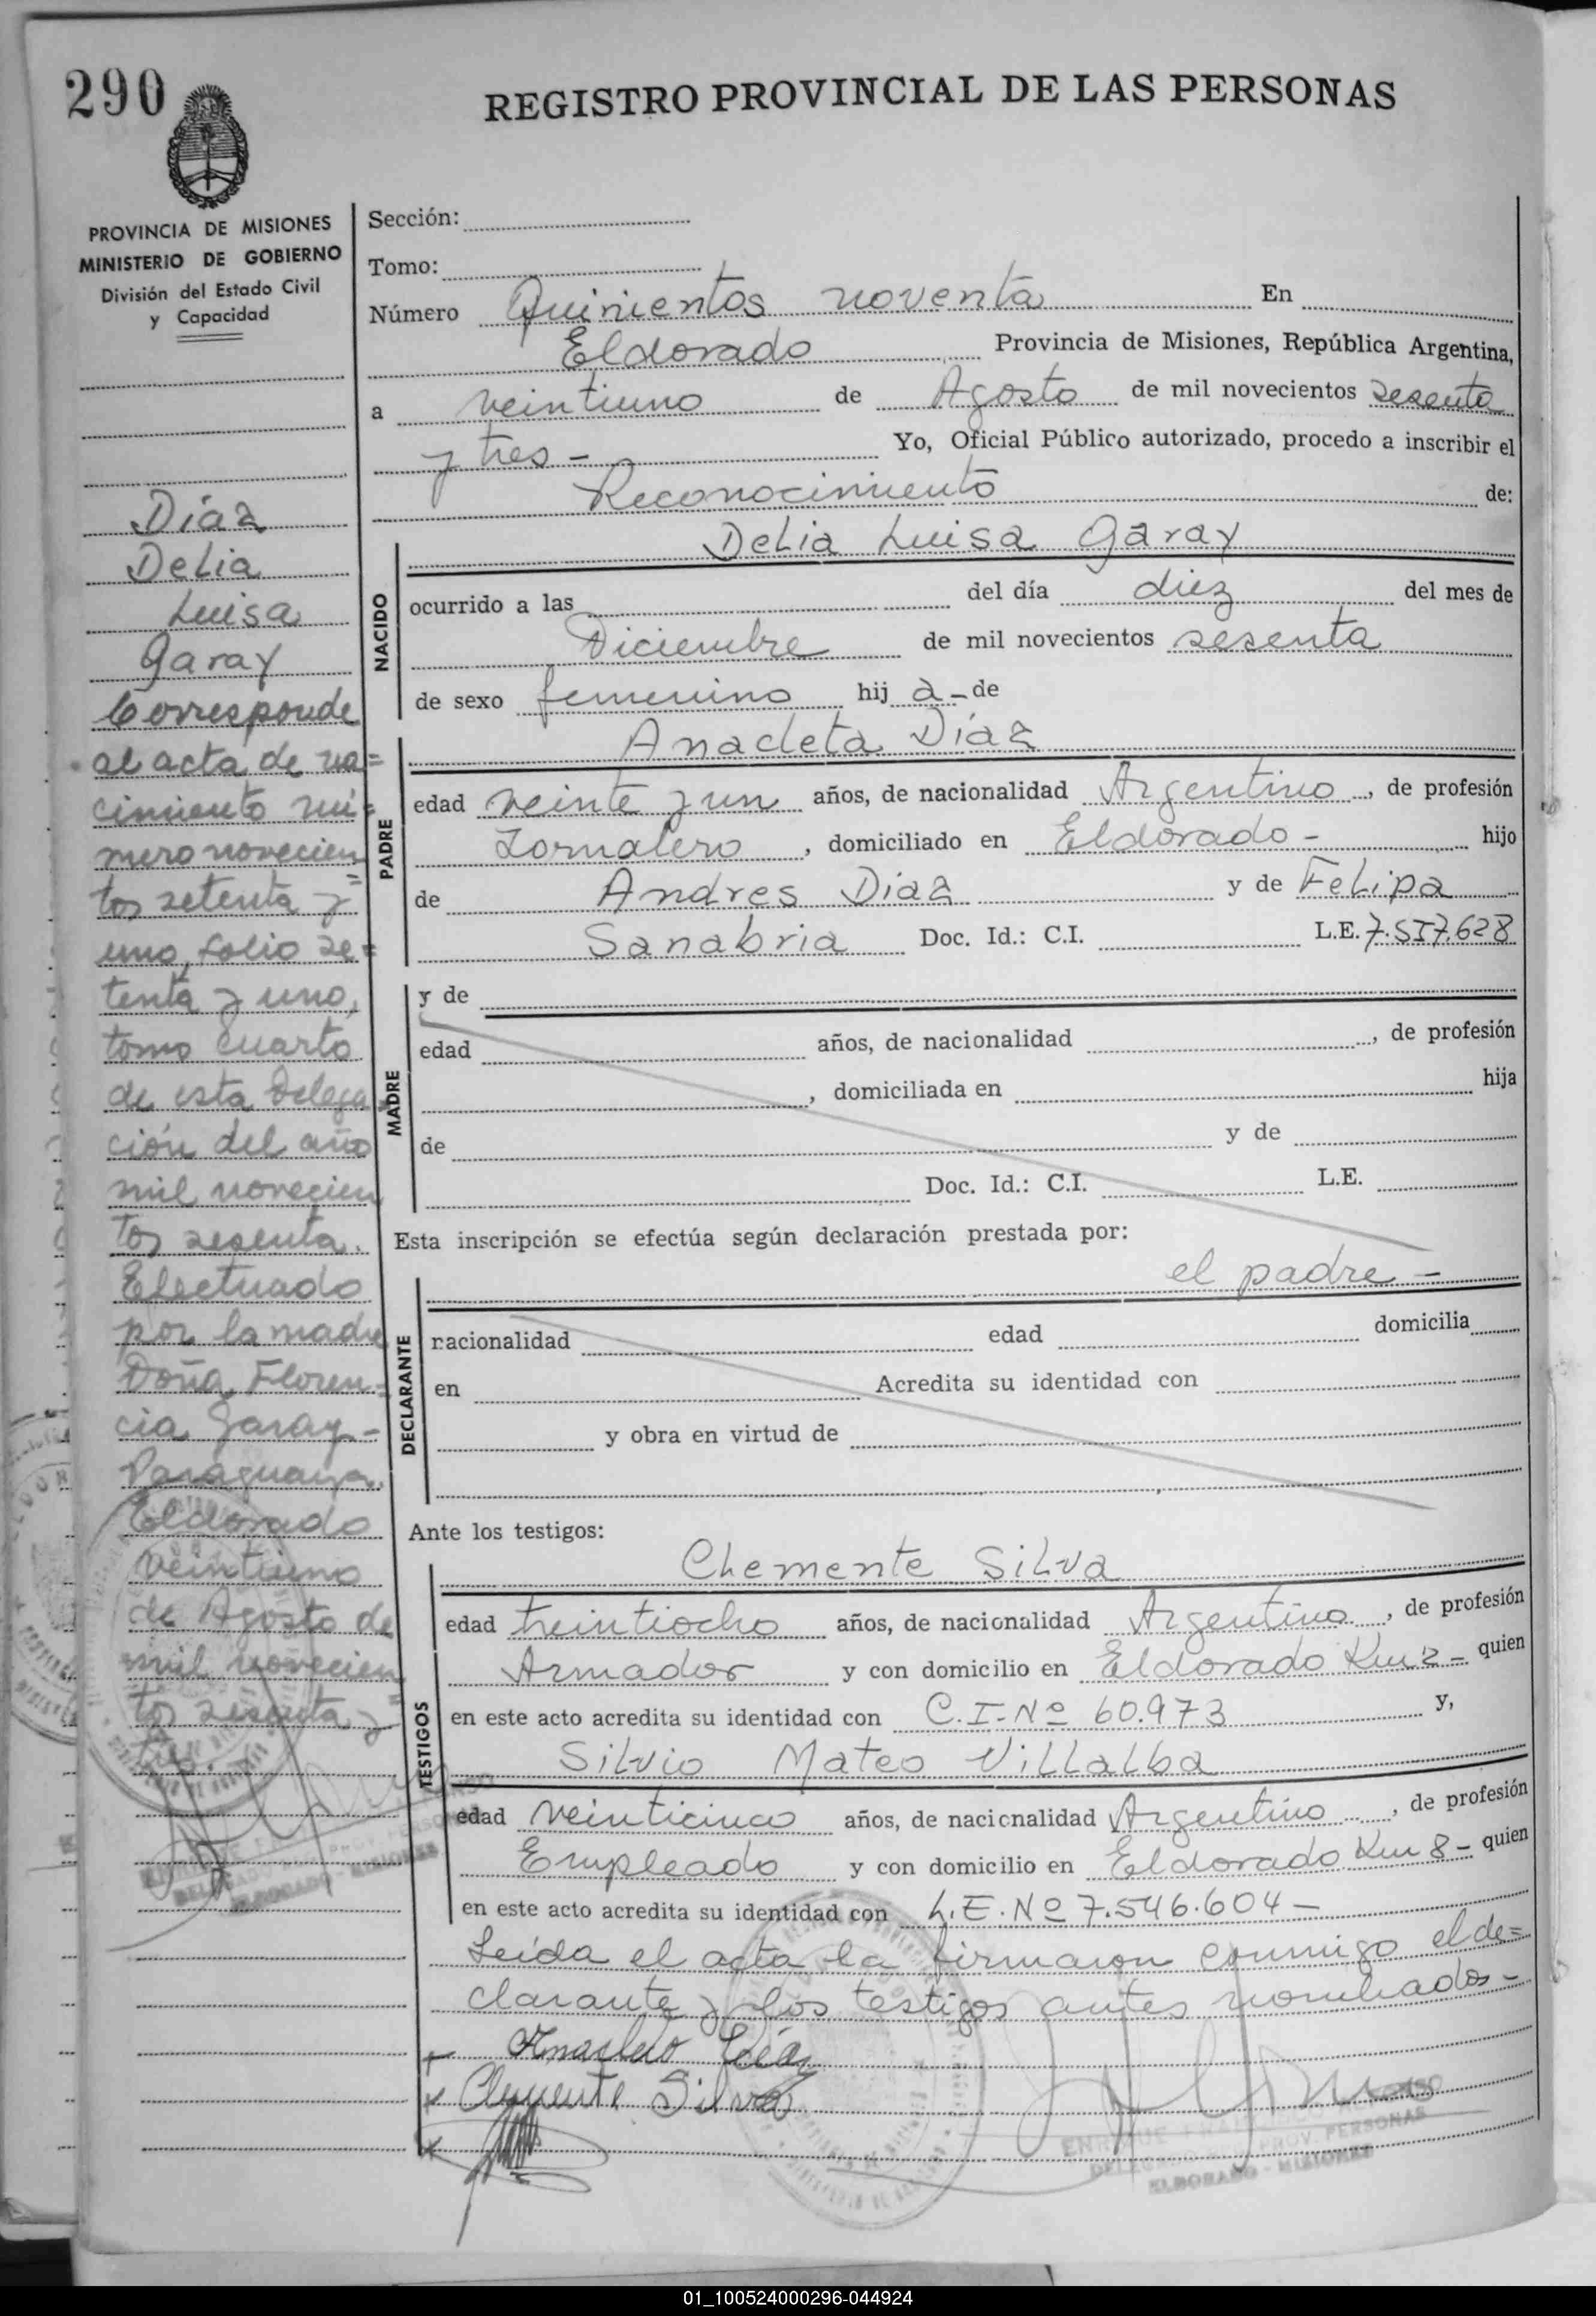 290
REGISTRO PROVINCIAL DE LAS PERSONAS
PROVINCIA DE MISIONES
MINISTERIO DE GOBIERNO
División del Estado Civil
y Capacidad
Díaz
Delia
Luisa
Garay
Corresponde
al acta de na=
cimiento nú=
mero novecien
tos setenta y=
uno, folio se=
tenta y uno,
tomo cuarto
de esta Delega=
ción del año
mil novecien
tos sesenta.
Efectuado
por la madre
Doña Floren=
cia Garay-
Paraguaya.
Eldorado
veintiuno
de Agosto de
mil novecien
tos sesenta y
tres.
Sección:
Tomo:
Número Quinientos noventa En
Eldorado Provincia de Misiones, República Argentina,
a veintiuno de Agosto de mil novecientos sesenta
y tres - Yo, Oficial Público autorizado, procedo a inscribir el
Reconocimiento de:
NACIDO
Delia Luisa Garay
ocurrido a las del día diez del mes de
Diciembre de mil novecientos sesenta
de sexo femenino hij a - de
PADRE
Anacleta Díaz
edad veinte y un años, de nacionalidad Argentino, de profesión
Jornalero, domiciliado en Eldorado - hijo
de Andres Diaz y de Felipa
Sanabria Doc. Id.: C.I. L.E. 7.517.628
MADRE
y de
edad años, de nacionalidad , de profesión
, domiciliada en hija
de y de
Doc. Id.: C.I. L.E.
Esta inscripción se efectúa según declaración prestada por:
el padre -
DECLARANTE
nacionalidad edad domicilia
en Acredita su identidad con
y obra en virtud de
Ante los testigos:
TESTIGOS
Chemente Silva
edad treintiocho años, de nacionalidad Argentino, de profesión
Armador y con domicilio en Eldorado Km 2 - quien
en este acto acredita su identidad con C.I-Nº 60.973 y,
Silvio Mateo Villalba
edad veinticinco años, de nacionalidad Argentino, de profesión
Empleado y con domicilio en Eldorado Km 8 - quien
en este acto acredita su identidad con L.E. Nº 7.546.604 -
Leída el acta la firmaron conmigo el de=
clarante y los testigos antes nombrados -
Anacleto Díaz
Clemente Silva
ELDORADO - MISIONES
01_100524000296-044924